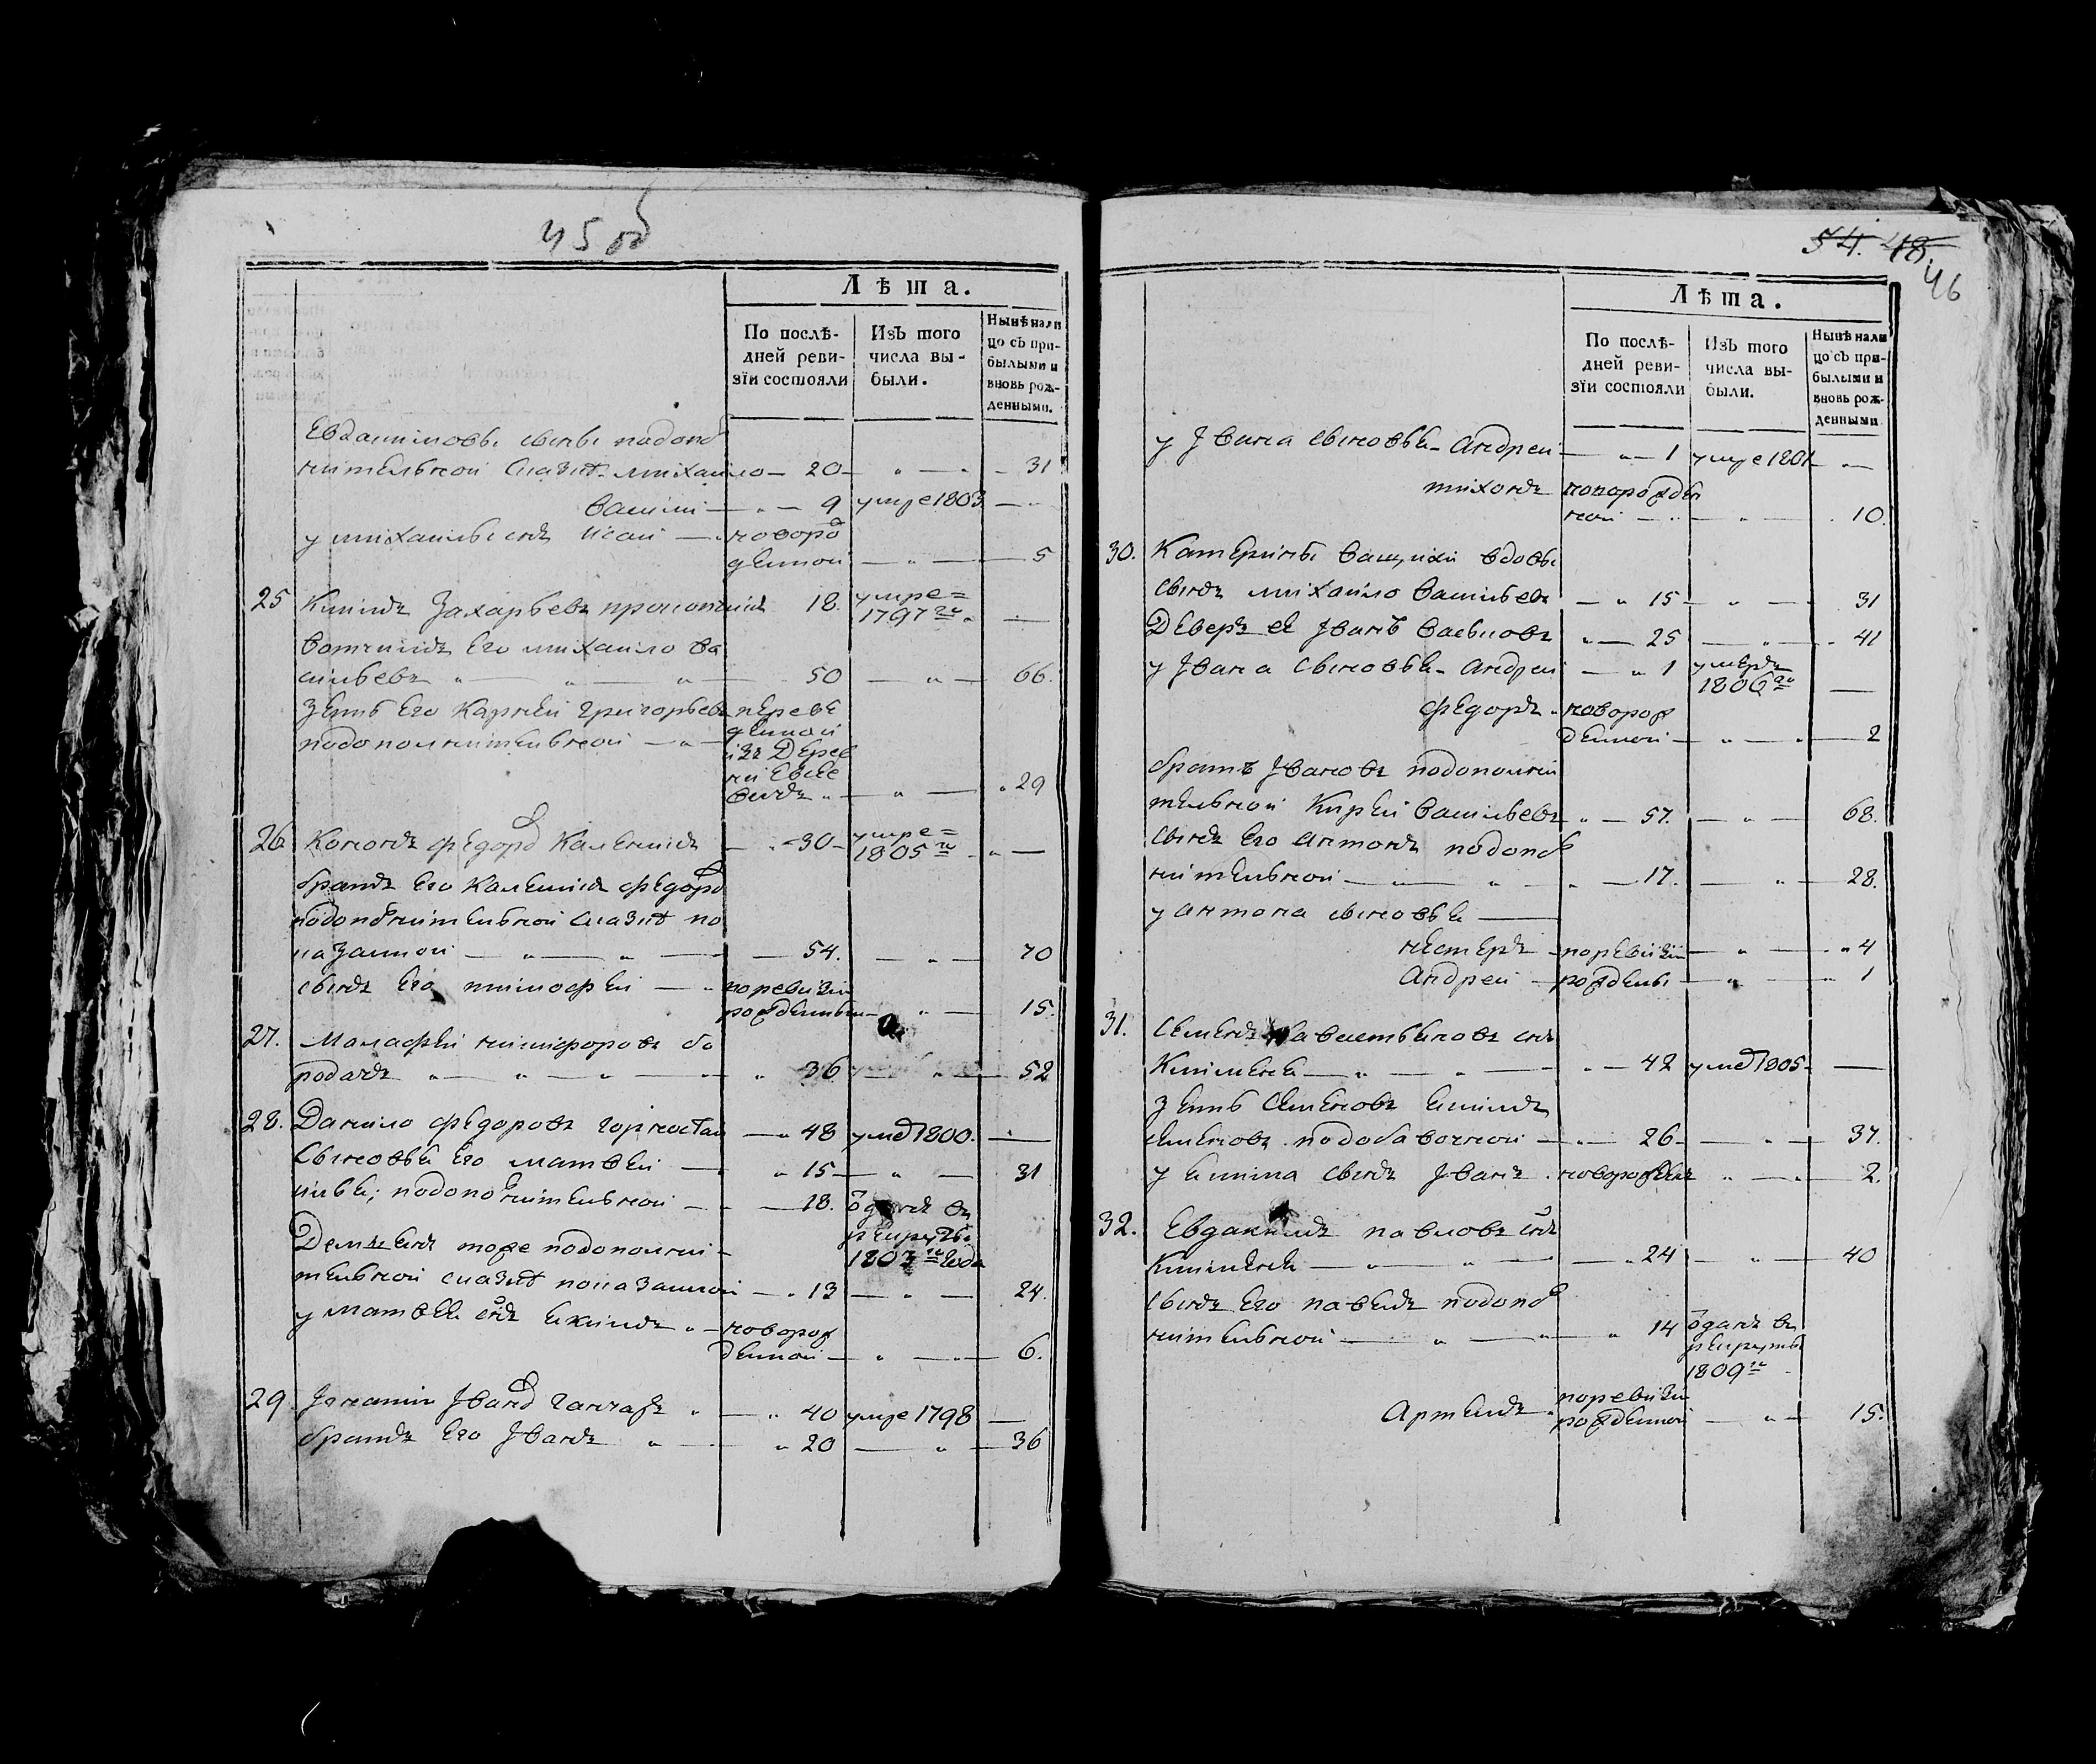 45 об
Лѣта.
По послѣ-
дней реви-
зїи состояли
Изъ того
числа вы-
были.
Нынѣ нали
цо съ при-
былыми и
вновь рож-
денными.
Евдокимовы сыны подопо
нительной сказкѣ Михайло — 20 — „ — 31
Василий — „ — 9 умре 1803 —
у Михайлы сынъ Исай — новоро
жденной — „ — 5
25 Климъ Захарьевъ 18. умре =
1797го. —
вотчимъ его Михайло Ва
сильевъ „ — „ — „ — 50 — „ — 66.
зять его Карней Григорьевъ переве
денной
подополнительной — „ — изъ дерев
ни
„ — „ — „ 29
26 Кононъ Федоро Каленикъ — „ — 30 — умре =
1805го „ —
братъ его Каленикъ Федоро
подополнительной сказкѣ по
казанной — „ — „ — 54. — „ — 70
сынъ его Тимофей — „ по ревизии
рожденный — „ — 15.
27. Малафей Никифоровъ бо
родачъ „ — „ — „ — „ 36 — „ — 52
28. Данило Федоровъ Горностай — „ 48 умре 1800. —
Сыновья его Матвей — „ 15 — „ — 31
Илья, подополнительной — 18. отданъ въ
рекруты
1807го года
Дементей тоже подополни-
тельной сказкѣ показанной — „ 13 — „ — 24.
у Матвея сынъ Екимъ „ — новорож
денной — „ — 6.
29. Иванъ Гончаръ „ — „ 40 умре 1798 —
братъ его Иванъ „ — „ 20 — „ — 36
54. 48.
46
Лѣта.
По послѣ-
дней реви-
зїи состояли
Изъ того
числа вы-
были.
Нынѣ нали
цо съ при-
былыми и
вновь рож-
денными
у Ивана сыновья — Андрей — „ — 1 умре 1801 — „ —
Тихонъ новорожде
ной — „ — „ — 10.
30. Катерины вдовы
сынъ Михайло Васильевъ — „ 15 — „ — 31
Деверь ее Иванъ „ — 25 — „ — 41
у Ивана сыновья — Андрей — „ 1 умеръ
1806го —
Федоръ „ новорож
денной — „ — „ — 2
братъ Ивановъ подополни
тельной Кирей Васильевъ „ — 57. — „ — 68.
сынъ его Антонъ подопо
нительной — „ — „ — „ — 17. — „ — 28.
у Антона сыновья —
Нестеръ — по ревизии — „ — „ 4
Андрей — рождены — „ — „ 1
31. Семенъ сынъ
— „ — „ — „ — 42 умре 1805 — —
зять Семеновъ Екимъ
Семеновъ подобавочной — „ — 26 — „ — 37.
у Екима сынъ Иванъ. новорожденъ „ — „ — 2.
32. Евдокимъ Павловъ сынъ
— „ — „ — „ 24 — „ — 40
сынъ его Павелъ подопо
нительной — „ — „ — „ 14 отданъ въ
рекруты
1809го
Артемъ „ по ревизии
рожденной — „ — 15.